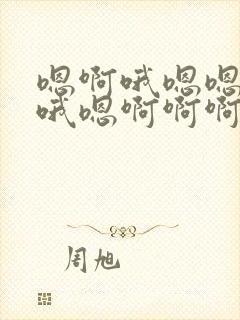 嗯啊哦嗯嗯
哦嗯啊啊啊
周旭